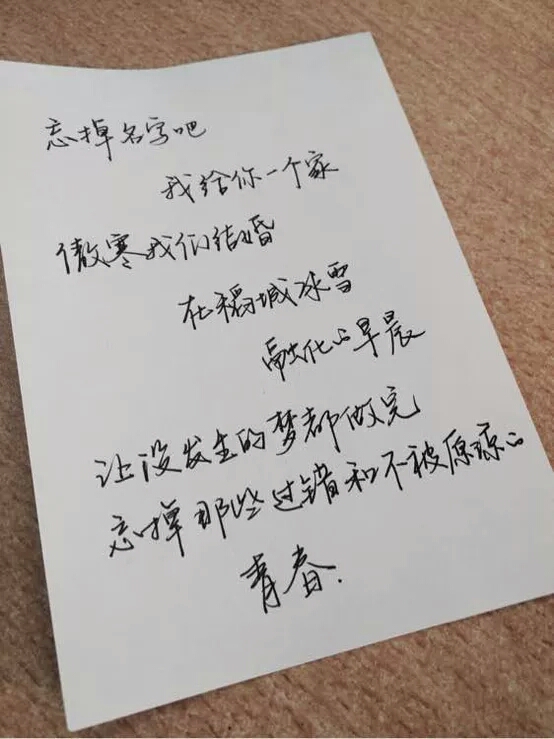 忘掉名字吧
我给你一个家
傲寒我们结婚
在稻城冰雪
融化的早晨
让没发生的梦都做完
忘掉那些过错和不被原谅的
青春.